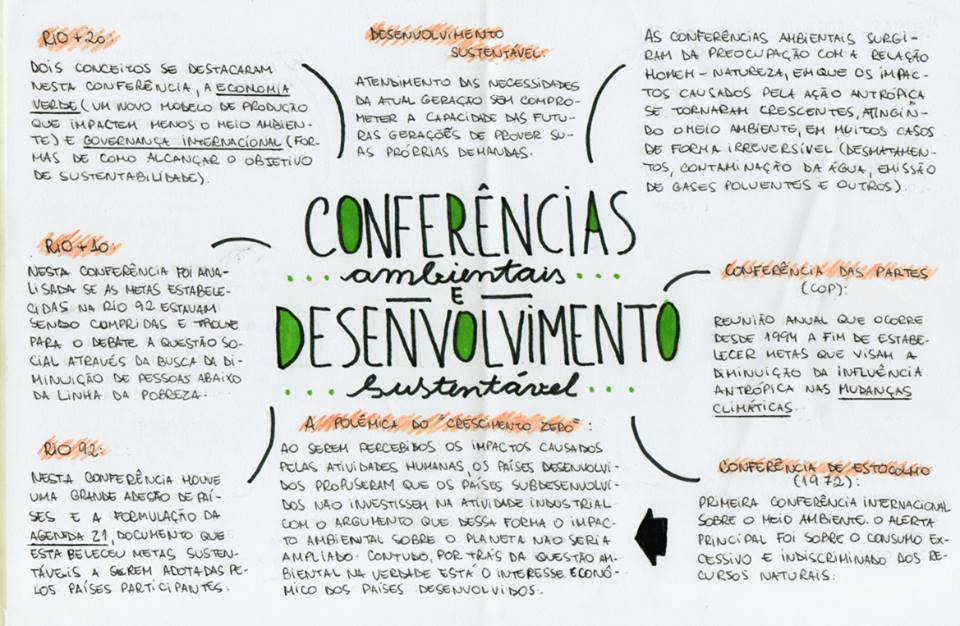 RIO + 20:
DOIS CONCEITOS SE DESTACARAM
NESTA CONFERÊNCIA, A ECONOMIA
VERDE (UM NOVO MODELO DE PRODUÇÃO
QUE IMPACTEM MENOS O MEIO AMBIEN-
TE) E GOVERNANÇA INTERNACIONAL (FOR-
MAS DE COMO ALCANÇAR O OBJETIVO
DE SUSTENTABILIDADE).
DESENVOLVIMENTO
SUSTENTÁVEL:
ATENDIMENTO DAS NECESSIDADES
DA ATUAL GERAÇÃO SEM COMPRO-
METER A CAPACIDADE DAS FUTU-
RAS GERAÇÕES DE PROVER SU-
AS PRÓRRIAS DEMANDAS.
AS CONFERÊNCIAS AMBIENTAIS SURGI-
RAM DA PREOCUPAÇÃO COM A RELAÇÃO
HOMEM - NATUREZA, EM QUE OS IMPAC-
TOS CAUSADOS PELA AÇÃO ANTRÓPICA
SE TORNARAM CRESCENTES, ATINGIN-
DO O MEIO AMBIENTE, EM MUITOS CASOS
DE FORMA IRREVERSÍVEL (DESMATAMEN-
TOS, CONTAMINAÇÃO DA ÁGUA, EMISSÃO
DE GASES POLUENTES E OUTROS).
CONFERÊNCIAS
ambientais
E
DESENVOLVIMENTO
sustentável
RIO + 10:
NESTA CONFERÊNCIA FOI ANA-
LISADA SE AS METAS ESTABELE-
CIDAS NA RIO 92 ESTAVAM
SENDO COMPRIDAS E TROUXE
PARA O DEBATE A QUESTÃO SO-
CIAL ATRAVÉS DA BUSCA DA DI-
MINUIÇÃO DE PESSOAS ABAIXO
DA LINHA DA POBREZA.
CONFERÊNCIA DAS PARTES
(COP):
REUNIÃO ANUAL QUE OCORRE
DESDE 1994 A FIM DE ESTABE-
LECER METAS QUE VISAM A
DIMINUIÇÃO DA INFLUÊNCIA
ANTRÓPICA NAS MUDANÇAS
CLIMÁTICAS.
RIO 92:
NESTA CONFERÊNCIA HOUVE
UMA GRANDE ADEÇÃO DE PAÍ-
SES E A FORMULAÇÃO DA
AGENDA 21, DOCUMENTO QUE
ESTABELECEU METAS SUSTEN-
TÁVEIS A SEREM ADOTADAS PE-
LOS PAÍSES PARTICIPANTES.
A POLÊMICA DO "CRESCIMENTO ZERO":
AO SEREM PERCEBIDOS OS IMPACTOS CAUSADOS
PELAS ATIVIDADES HUMANAS, OS PAÍSES DESENVOLVI-
DOS PROPUSERAM QUE OS PAÍSES SUBDESENVOLVI-
DOS NÃO INVESTISSEM NA ATIVIDADE INDUSTRIAL
COM O ARGUMENTO QUE DESSA FORMA O IMPAC-
TO AMBIENTAL SOBRE O PLANETA NÃO SERIA
AMPLIADO. CONTUDO, POR TRÁS DA QUESTÃO AM-
BIENTAL NA VERDADE ESTÁ O INTERESSE ECONÔ-
MICO DOS PAÍSES DESENVOLVIDOS.
CONFERÊNCIA DE ESTOCOLMO
(1972):
PRIMEIRA CONFERÊNCIA INTERNACIONAL
SOBRE O MEIO AMBIENTE. O ALERTA
PRINCIPAL FOI SOBRE O CONSUMO EX-
CESSIVO E INDISCRIMINADO DOS RE-
CURSOS NATURAIS.